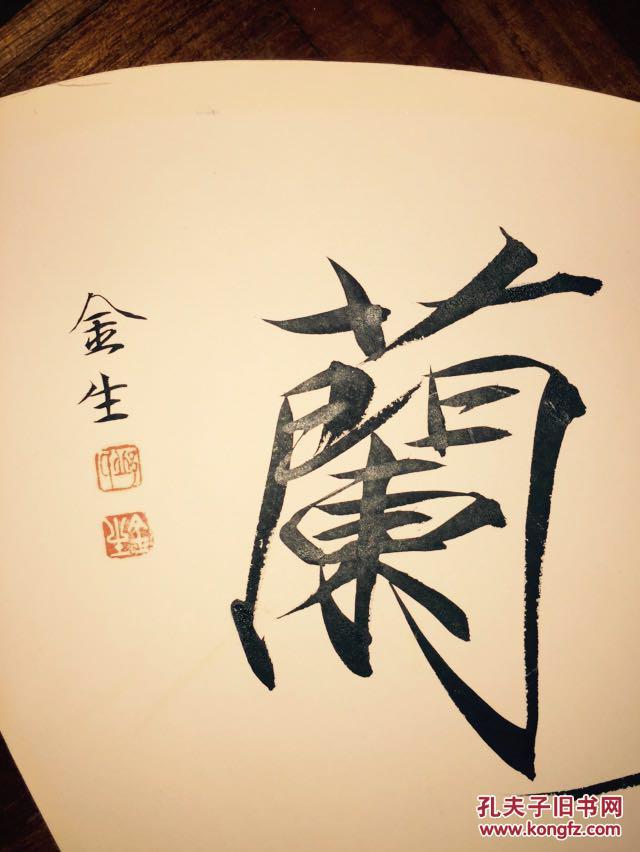 蘭
金生
金生
孔夫子旧书网
www.kongfz.com